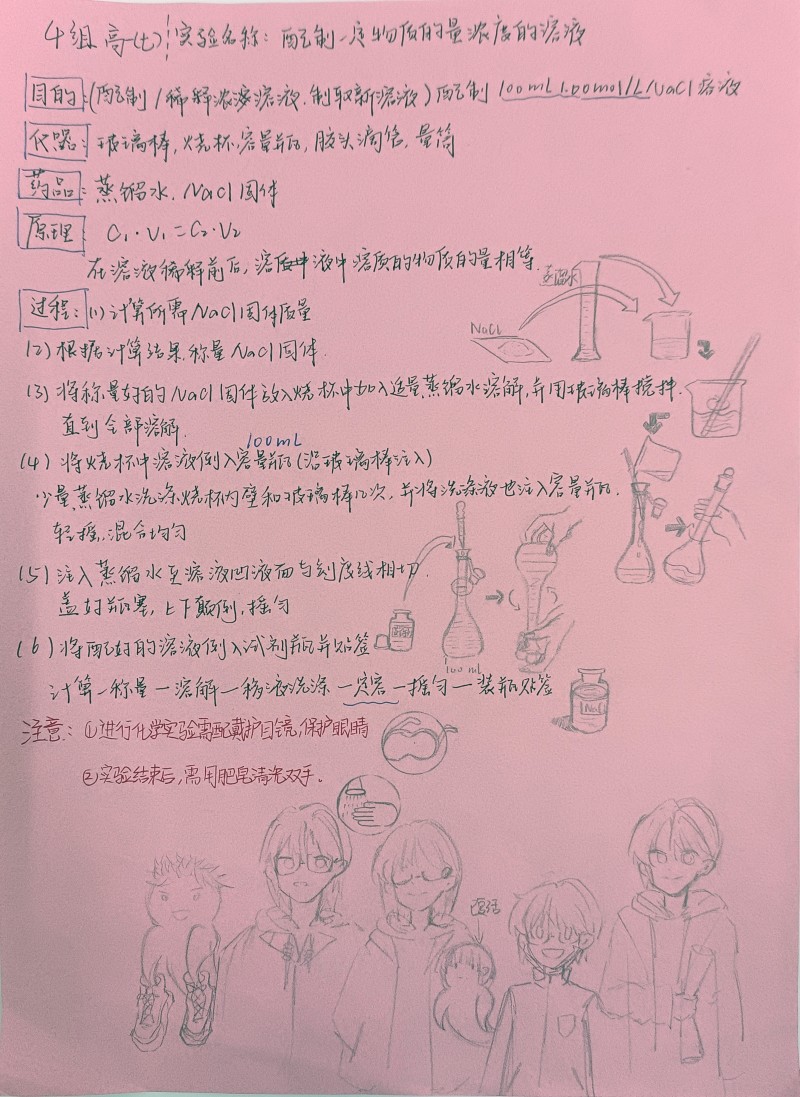 4组 高一(七) 实验名称：配制一定物质的量浓度的溶液
目的：(配制/稀释浓溶液.制取新溶液)配制100mL 1.00mol/L NaCl溶液
仪器：玻璃棒，烧杯，容量瓶，胶头滴管，量筒
药品：蒸馏水. NaCl固体
原理 C₁·V₁=C₂·V₂
在溶液稀释前后，溶液中溶质的物质的量相等.
蒸馏水
过程：(1)计算所需NaCl固体质量
NaCl
(2)根据计算结果.称量NaCl固体.
(3)将称量好的NaCl固体放入烧杯中加入适量蒸馏水溶解，并用玻璃棒搅拌.
直到全部溶解.
100mL
(4)将烧杯中溶液倒入容量瓶(沿玻璃棒注入)
少量蒸馏水洗涤烧杯内壁和玻璃棒几次，并将洗涤液也注入容量瓶.
轻摇，混合均匀
(5)注入蒸馏水至溶液凹液面与刻度线相切.
盖好瓶塞，上下颠倒，摇匀
(6)将配好的溶液倒入试剂瓶并贴签
100mL
计算—称量—溶解—移液洗涤—定容—摇匀—装瓶贴签
NaCl
注意：①进行化学实验需配戴护目镜，保护眼睛
②实验结束后，需用肥皂清洗双手。